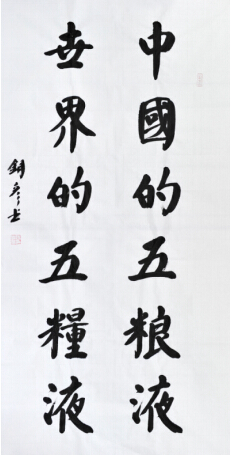 中國的五粮液
世界的五糧液